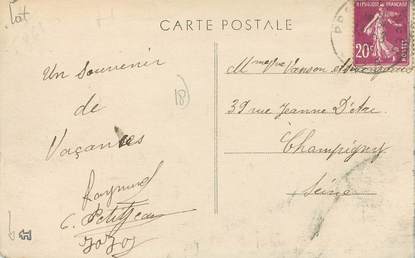 CARTE POSTALE
REPUBLIQUE FRANÇAISE
20c
Un Souvenir
de
Vacances
Raymond
C. Petitjean
JoJo
(8)
M me Vanson
39 rue Jeanne D'Arc
Champigny
Seine